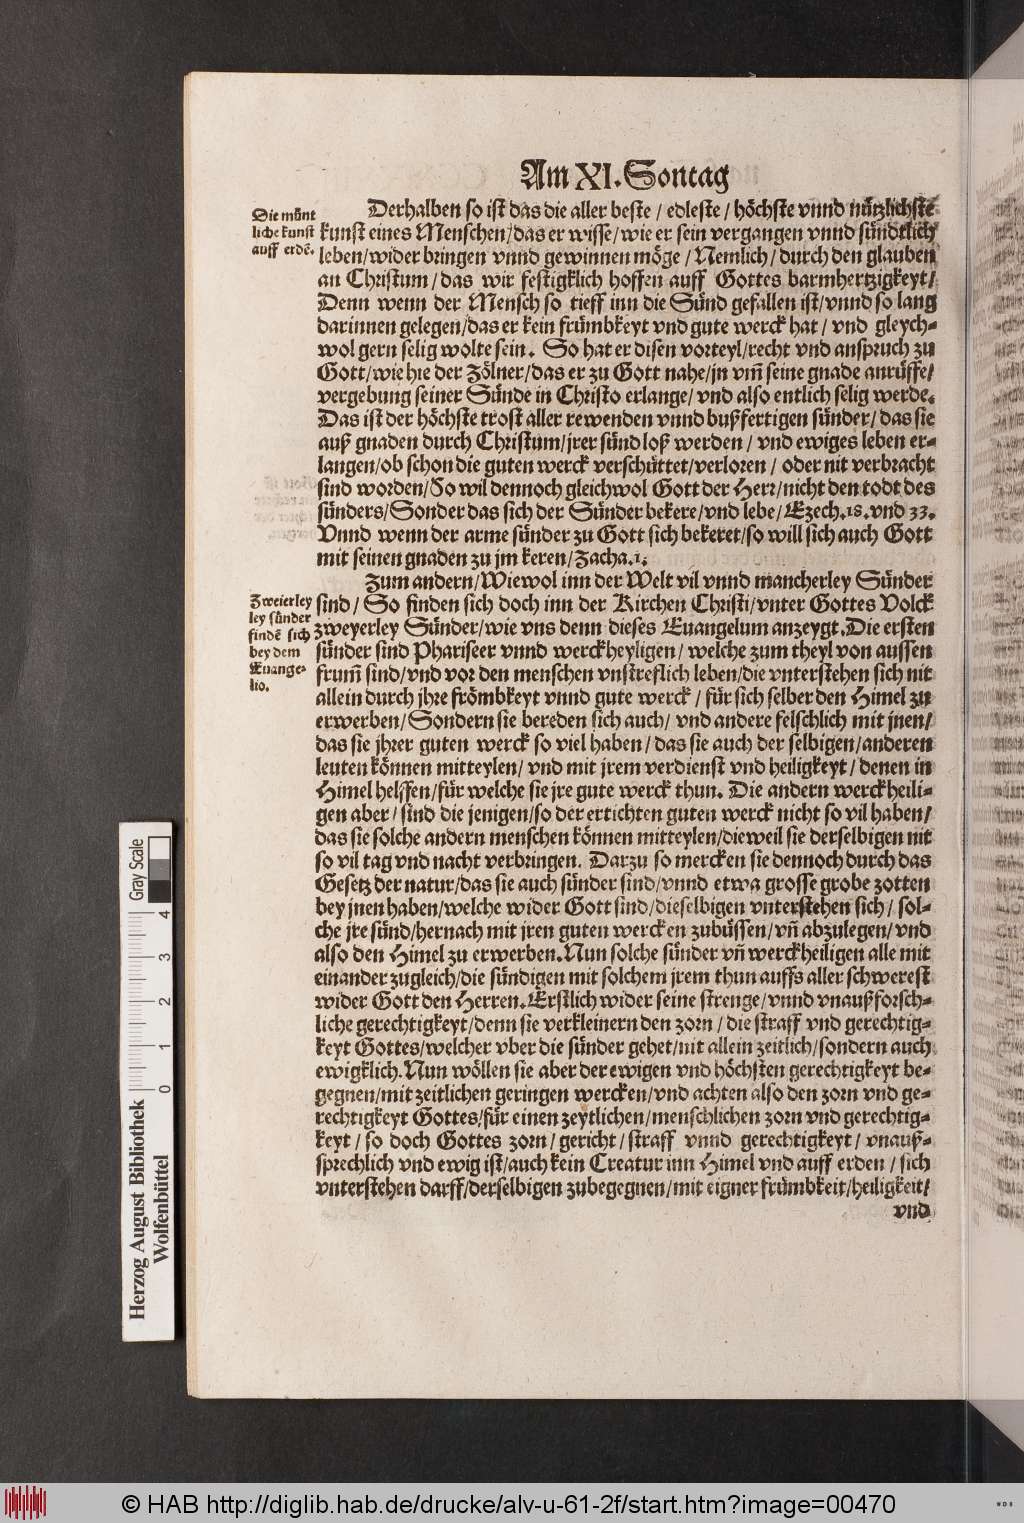 Am XI. Sontag
Die münt
liche kunst
auff erdē.
Derhalben so ist das die aller beste / edleste / höchste vnnd nützlichste
kunst eines Menschen/das er wisse/wie er sein vergangen vnnd sündtlich
leben/wider bringen vnnd gewinnen möge / Nemlich/durch den glauben
an Christum/das wir festigklich hoffen auff Gottes barmhertzigkeyt/
Denn wenn der Mensch so tieff inn die Sünd gefallen ist/vnnd so lang
darinnen gelegen/das er kein frümbkeyt vnd gute werck hat / vnd gleych-
wol gern selig wolte sein. So hat er disen vorteyl/recht vnd anspruch zu
Gott/wie hie der Zölner/das er zu Gott nahe/jn vm̄ seine gnade anrüffe/
vergebung seiner Sünde in Christo erlange/ vnd also entlich selig werde.
Das ist der höchste trost aller rewenden vnnd bußfertigen sünder/das sie
auß gnaden durch Christum/jrer sünd loß werden / vnd ewiges leben er-
langen/ob schon die guten werck verschüttet/verloren / oder nit verbracht
sind worden/So wil dennoch gleichwol Gott der Herr/nicht den todt des
sünders/Sonder das sich der Sünder bekere/vnd lebe/Ezech.18.vnd 33.
Vnnd wenn der arme sünder zu Gott sich bekeret/so will sich auch Gott
mit seinen gnaden zu jm keren/Zacha.1.
Zweierley
ley sünder
findē sich
bey dem
Euange-
lio.
Zum andern/Wiewol inn der Welt vil vnnd mancherley Sünder
sind/ So finden sich doch inn der Kirchen Christi/vnter Gottes Volck
zweyerley Sünder/wie vns denn dieses Euangelum anzeygt.Die ersten
sünder sind Phariseer vnnd werckheyligen/ welche zum theyl von aussen
frum̄ sind/vnd vor den menschen vnstreflich leben/die vnterstehen sich nit
allein durch jhre frömbkeyt vnnd gute werck / für sich selber den Himel zu
erwerben/Sondern sie bereden sich auch/ vnd andere felschlich mit jnen/
das sie jhrer guten werck so viel haben/das sie auch der selbigen/anderen
leuten können mitteylen/ vnd mit jrem verdienst vnd heiligkeyt/denen in
Himel helffen/für welche sie jre gute werck thun. Die andern werckheili-
gen aber/ sind die jenigen/so der ertichten guten werck nicht so vil haben/
das sie solche andern menschen können mitteylen/dieweil sie derselbigen nit
so vil tag vnd nacht verbringen. Darzu so mercken sie dennoch durch das
Gesetz der natur/das sie auch sünder sind/vnnd etwa grosse grobe zotten
bey jnen haben/welche wider Gott sind/dieselbigen vnterstehen sich/ sol-
che jre sünd/hernach mit jren guten wercken zubüssen/vn̄ abzulegen/vnd
also den Himel zu erwerben.Nun solche sünder vn̄ werckheiligen alle mit
einander zugleich/die sündigen mit solchem jrem thun auffs aller schwerest
wider Gott den Herren.Erstlich wider seine strenge/vnnd vnaußforsch-
liche gerechtigkeyt/denn sie verkleinern den zorn/die straff vnd gerechtig-
keyt Gottes/welcher vber die sünder gehet/nit allein zeitlich/sondern auch
ewigklich.Nun wöllen sie aber der ewigen vnd höchsten gerechtigkeyt be-
gegnen/mit zeitlichen geringen wercken/vnd achten also den zorn vnd ge-
rechtigkeyt Gottes/für einen zeytlichen/menschlichen zorn vnd gerechtig-
keyt / so doch Gottes zorn/gericht/straff vnnd gerechtigkeyt/ vnauß-
sprechlich vnd ewig ist/auch kein Creatur inn Himel vnd auff erden / sich
vnterstehen darff/derselbigen zubegegnen/mit eigner frümbkeit/heiligkeit/
vnd
Herzog August Bibliothek
Wolfenbüttel
0 1 2 3 4
Gray Scale
© HAB http://diglib.hab.de/drucke/alv-u-61-2f/start.htm?image=00470